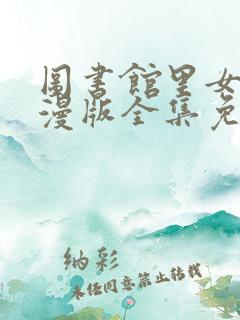 图书馆里女
漫版全集免
纳彩
未经同意禁止转载